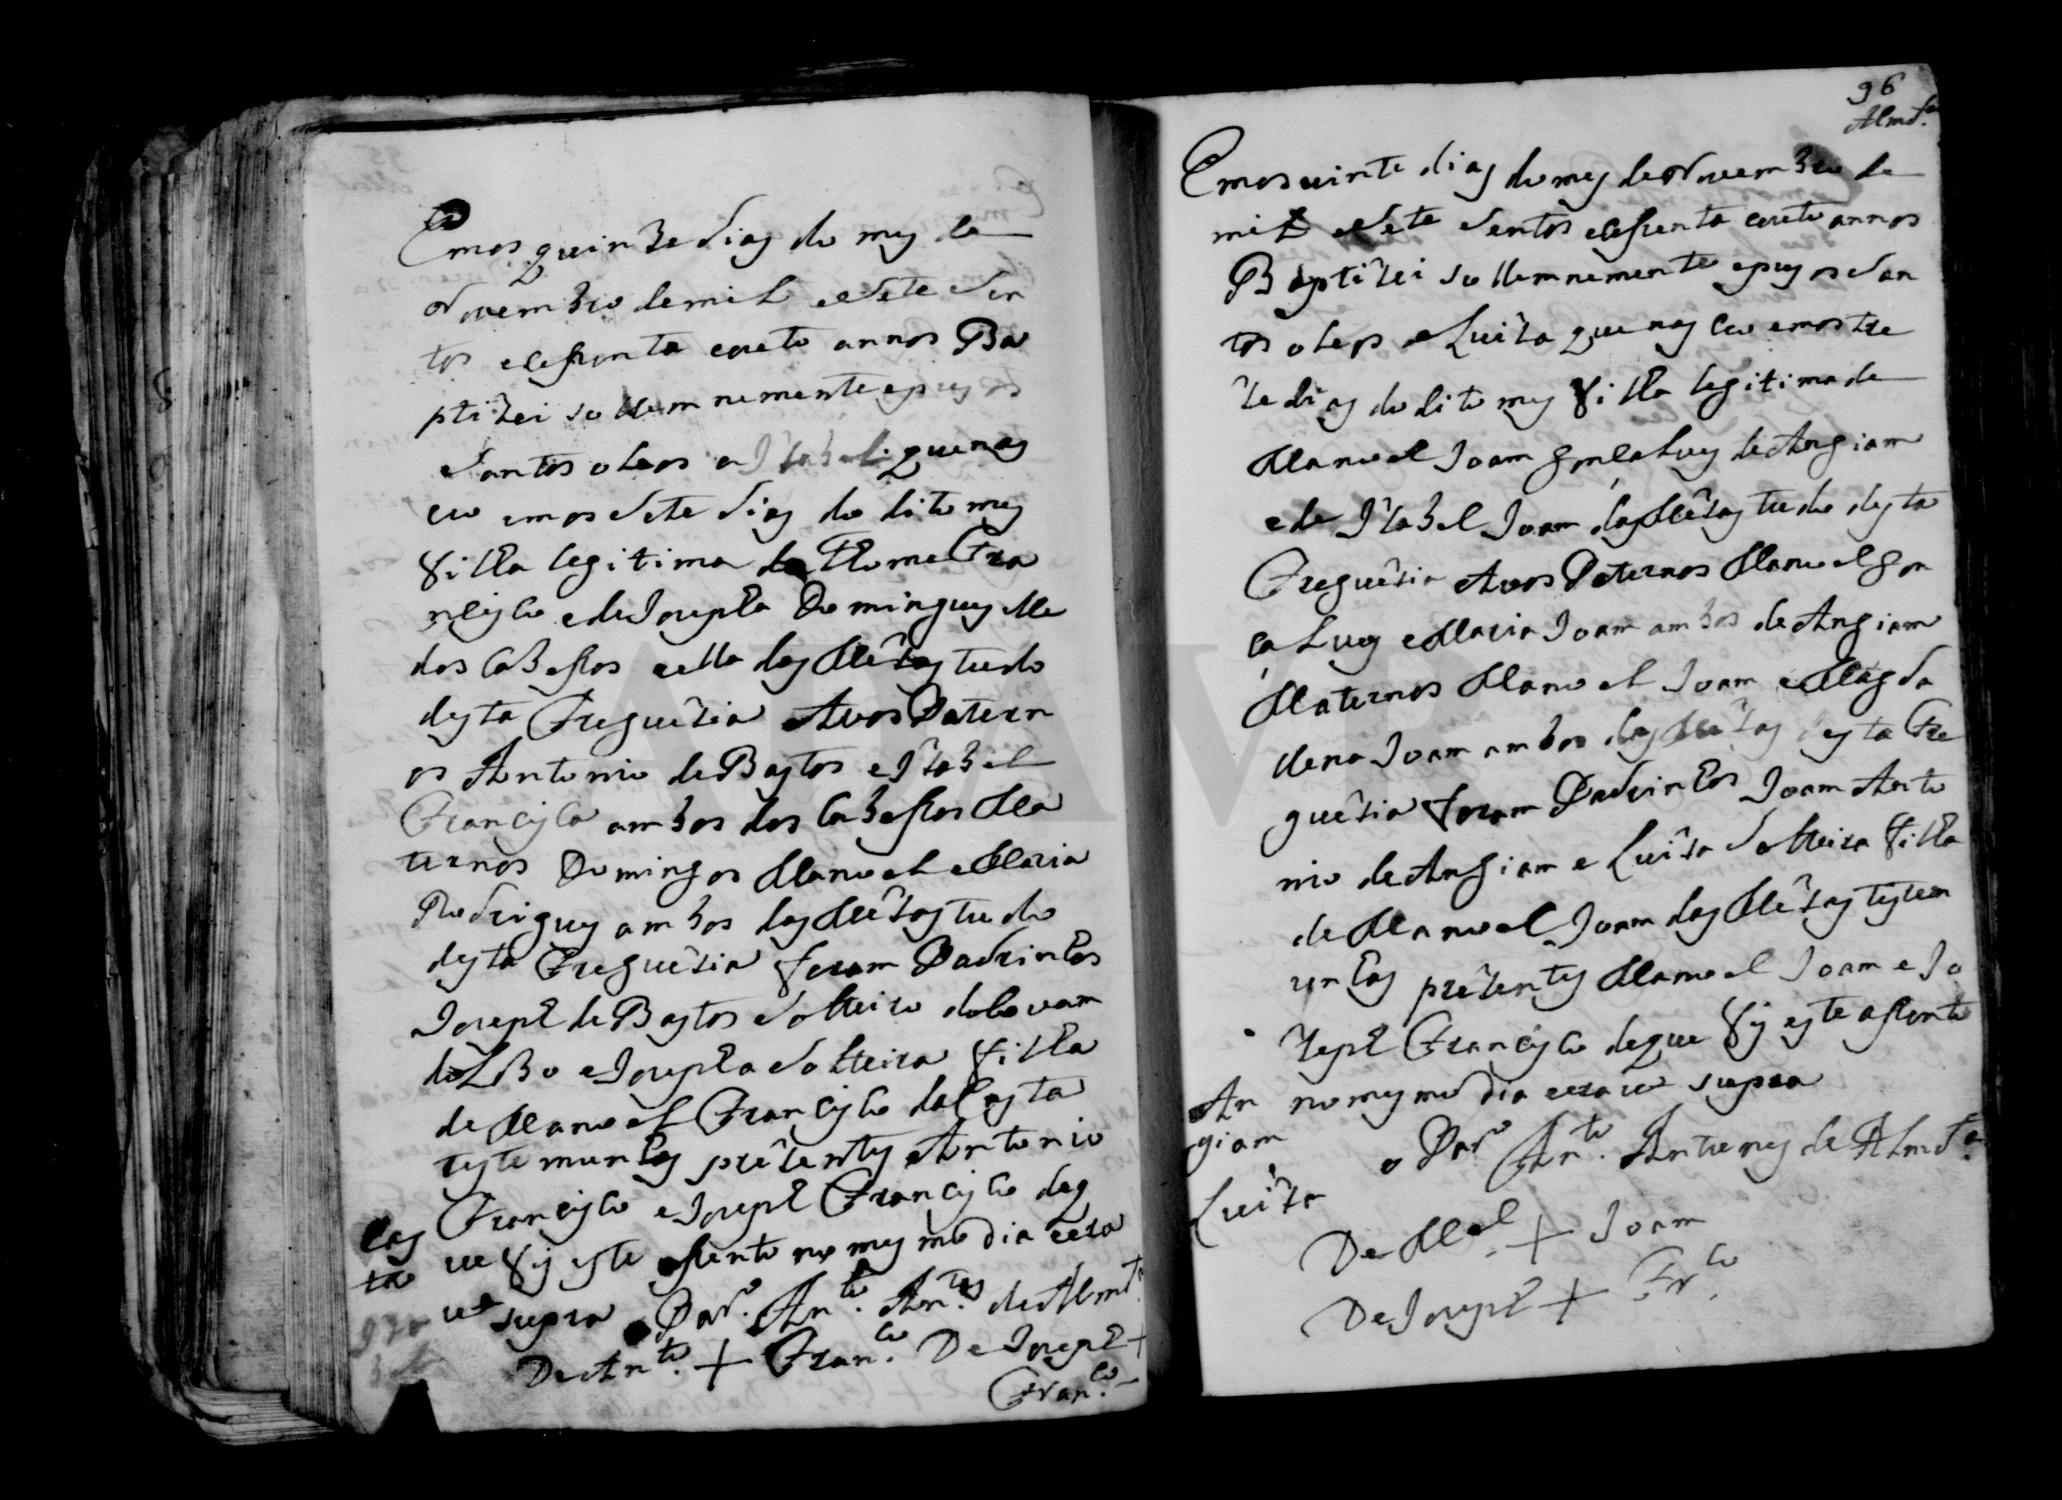 Em os quinze dias do mes de
Novembro de mil e sete sen
tos e cesenta e oito annos Ba
ptizei sollemnemente e pus os
santos oleos a Izabel que nas
ceo em os sete dias do dito mes
filha legitima de Thome Fra
ncisco e de Josepha Domingues elle
dos Cabessos e ella das Mêsas tudo
desta Freguêzia Avos Patern
os Antonio de Bastos e Izabel
Francisca ambos dos Cabessos Ma
ternos Domingos Manoel e Maria
Rodrigues ambos das Mêzas tudo
desta Freguêzia foram Padrinhos
Joseph de Bastos solteiro do Covam
do Lobo e Josepha solteira filha
de Manoel Francisco da Costa
testemunhas prezentes Antonio
Francisco e Joseph Francisco deq
ue fis este asento no mesmo dia e era
ut supra o Par.º An.to An.tes de Almd.ª
De An.to + Fran.co De Joseph +
Fran.co
Cos
ta
Iza
bel
96
Almd.ª
Em os vinte dias do mes de Novembro de
mil e sete sentos e cesenta e oito annos
Baptizei sollemnemente e pus os san
tos oleos a Luiza que nasceo em os tre
ze dias do dito mes filha legitima de
Manoel Joam Gonçalves de Angiam
e de Izabel Joam das Mêzas tudo desta
Freguêzia Avos Paternos Manoel Gon
çalves e Maria Joam ambos de Angiam
Maternos Manoel Joam e Magda
lena Joam ambos das Mêzas desta Fre
guêzia foram Padrinhos Joam Anto
nio de Angiam e Luiza solteira filha
de Manoel Joam das Mêzas testem
unhas prêzentes Manoel Joam e Jo
zeph Francisco deque fis este asento
no mesmo dia e era ut supra
o Par.º An.to Antunes de Almd.ª
De M.el + Joam
De Joseph + Fr.co
An
giam
Luiza